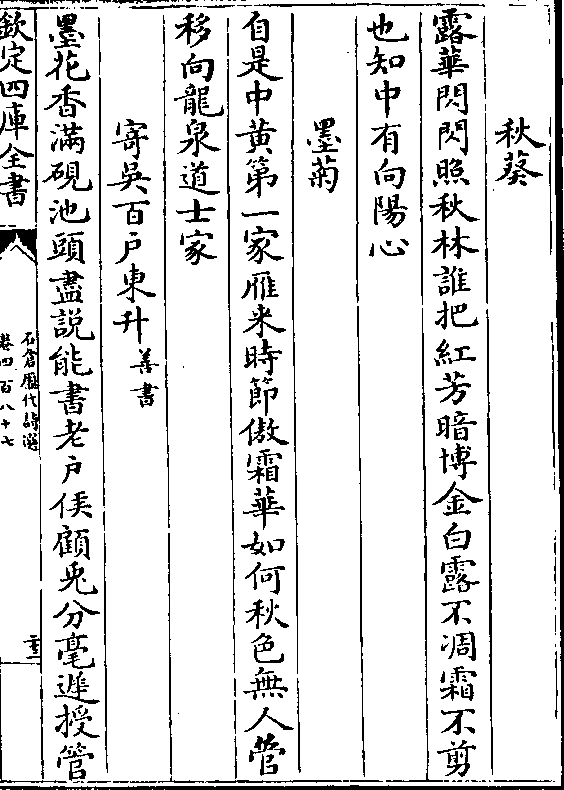 秋葵
露華閃閃照秋林誰把紅芳暗博金白露不凋霜不剪
也知中有向陽心
墨菊
自是中黄第一家雁来時節傲霜華如何秋色無人管
移向龍泉道士家
寄吳百户東升善書
墨花香滿硯池頭盡説能書老户侯顧兎分毫遲授管
欽定四庫全書
石倉歷代詩選
卷四百八十七